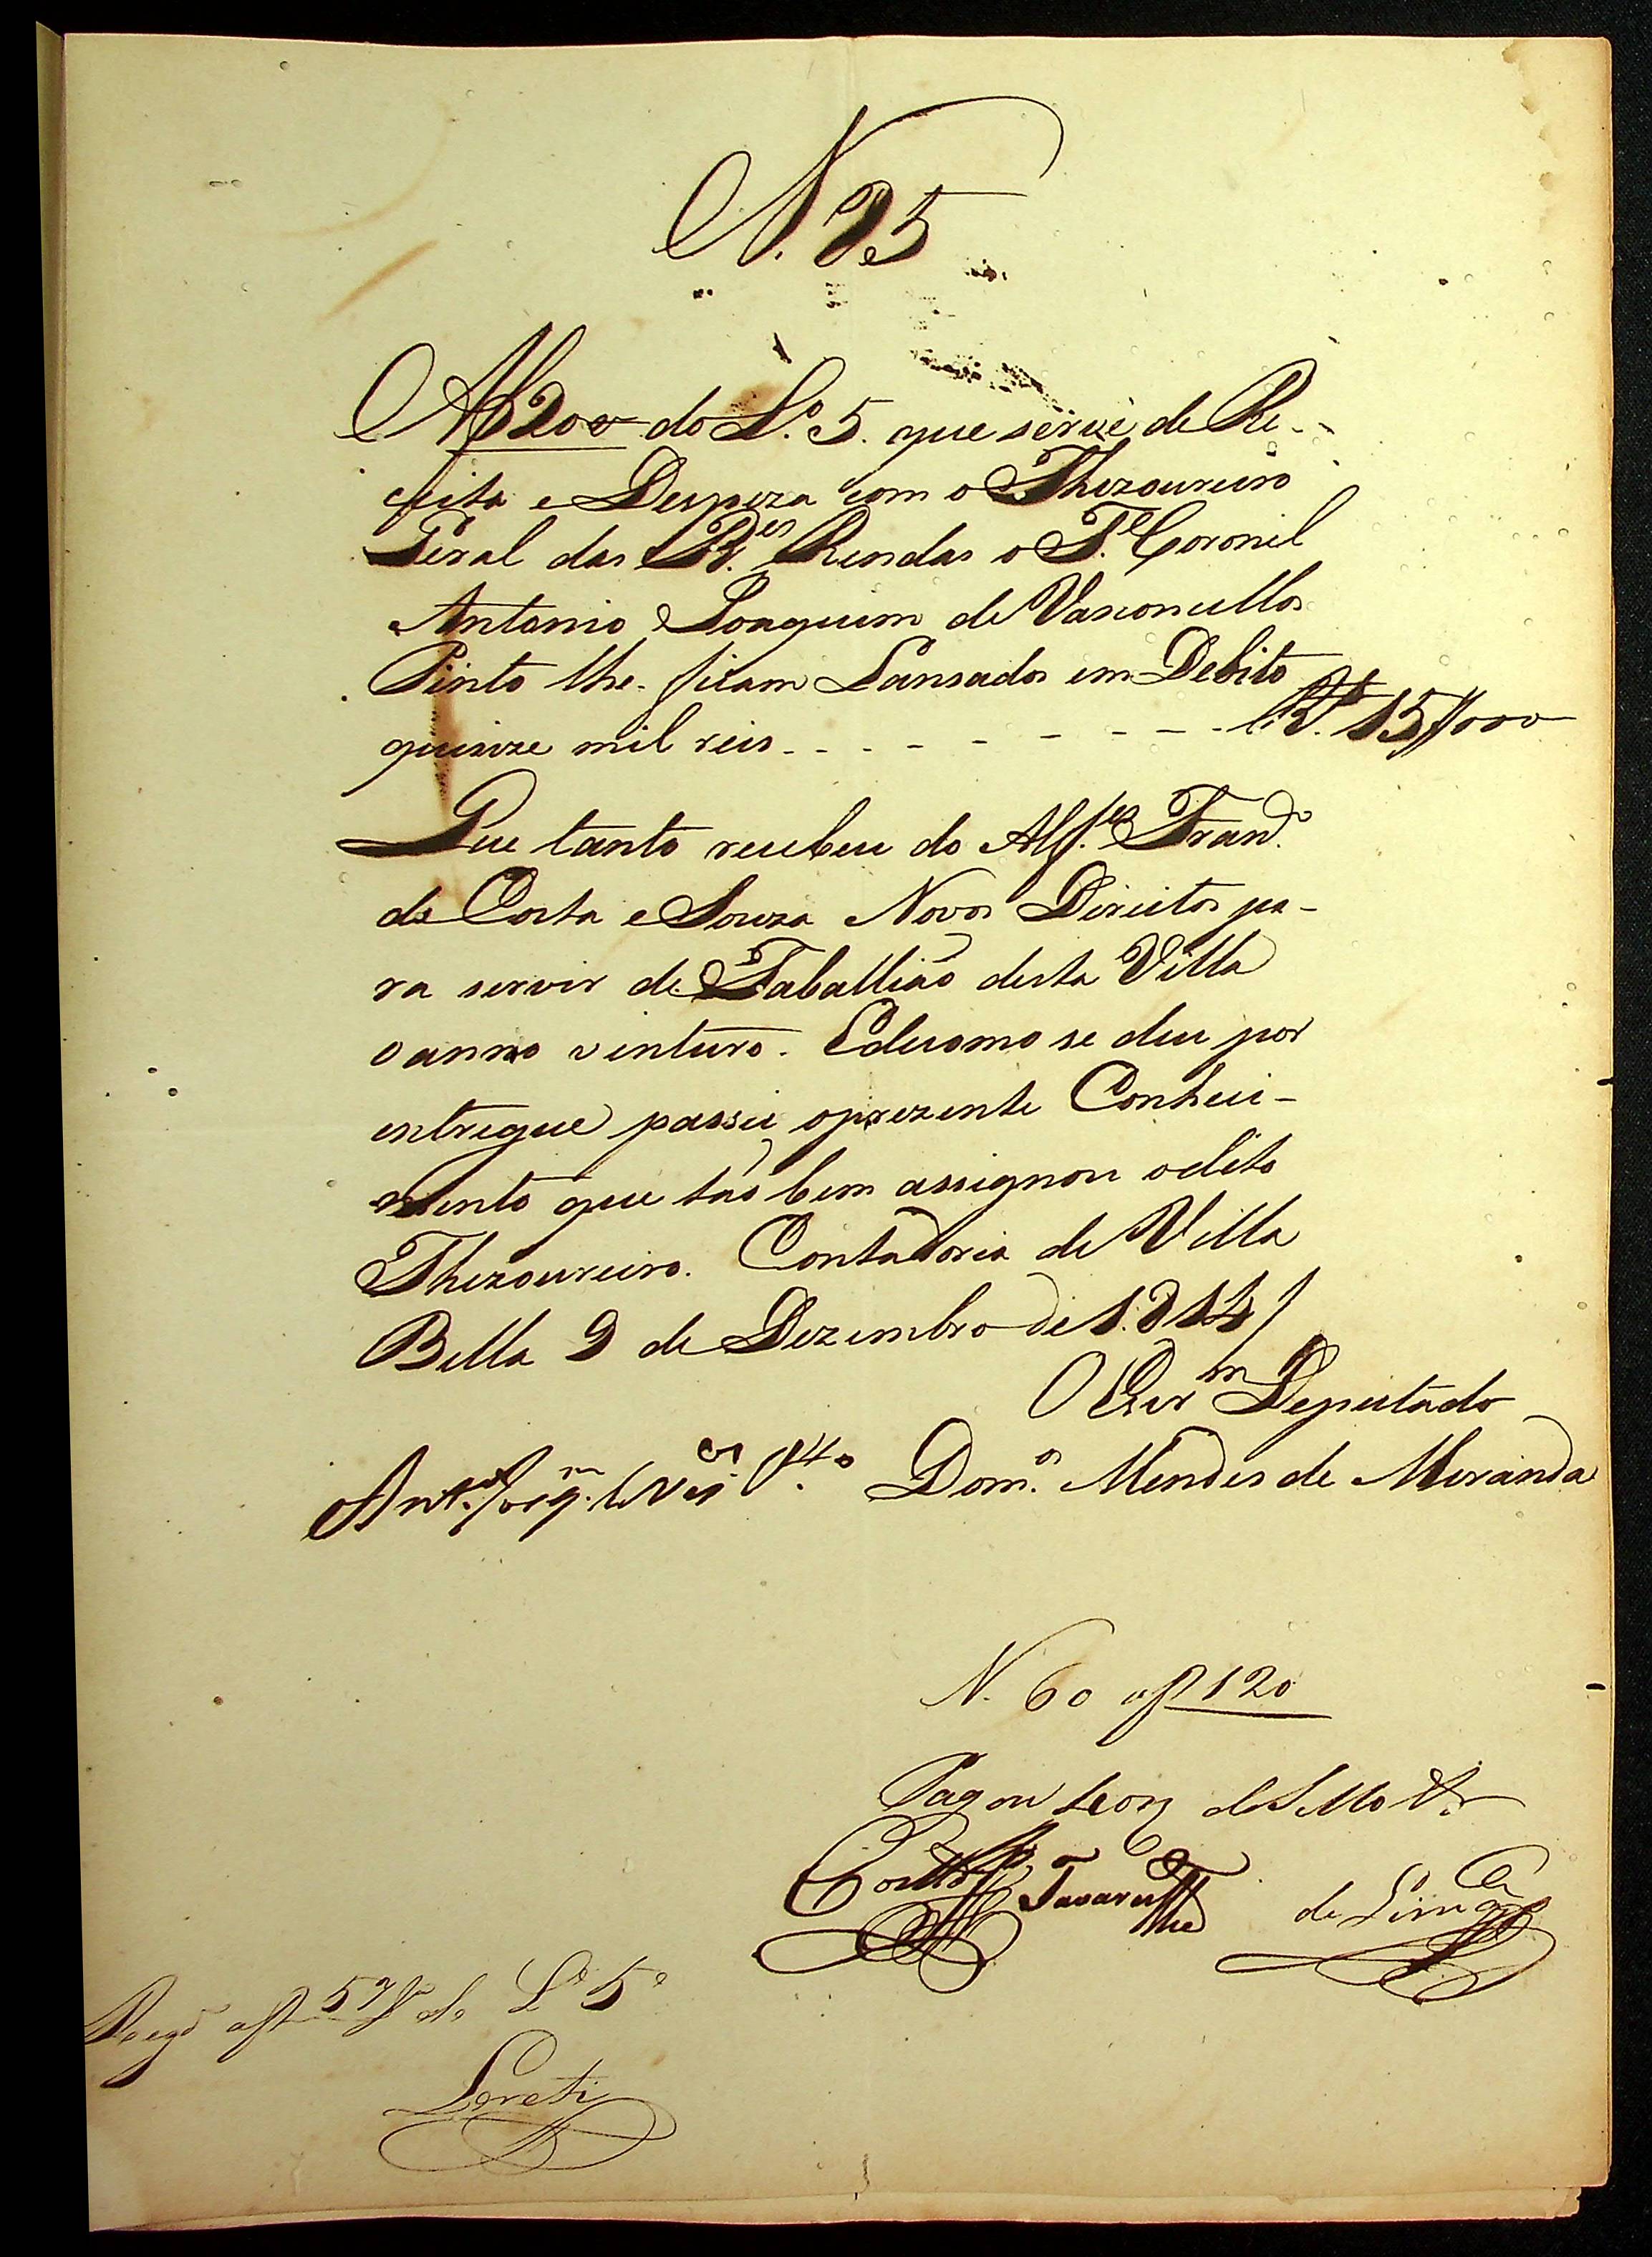 N. 25
Af 200 do L.º 5. que serve de Re-
ceita e Despeza com o Thezoureiro
Geral das R.es Rendas o T.e Coronel
Antonio Joaquim de Vasconcellos
Pinto lhe ficam Lansados em Debito
quinze mil reis - - - - - - - - R.s 15$000
Que tanto recebeu do Alf.es Fran.co
da Costa e Souza Novos Direitos pa-
ra servir de Taballião desta Villa
o anno vinturo. E de como se deu por
entregue passei o prezente Conheci-
mento que tão bem assignou o dito
Thezoureiro. Contadoria de Villa
Bella 9 de Dezembro de 1.814
O Escr.m Deputado
Ant.º Joaq.m Vas.os P.to Dom.os Mendes de Meranda
N. 60 af 120
Pagou de Sello
Tavares de Lima
Reg.do af 57 do L.º 5º
Loreti